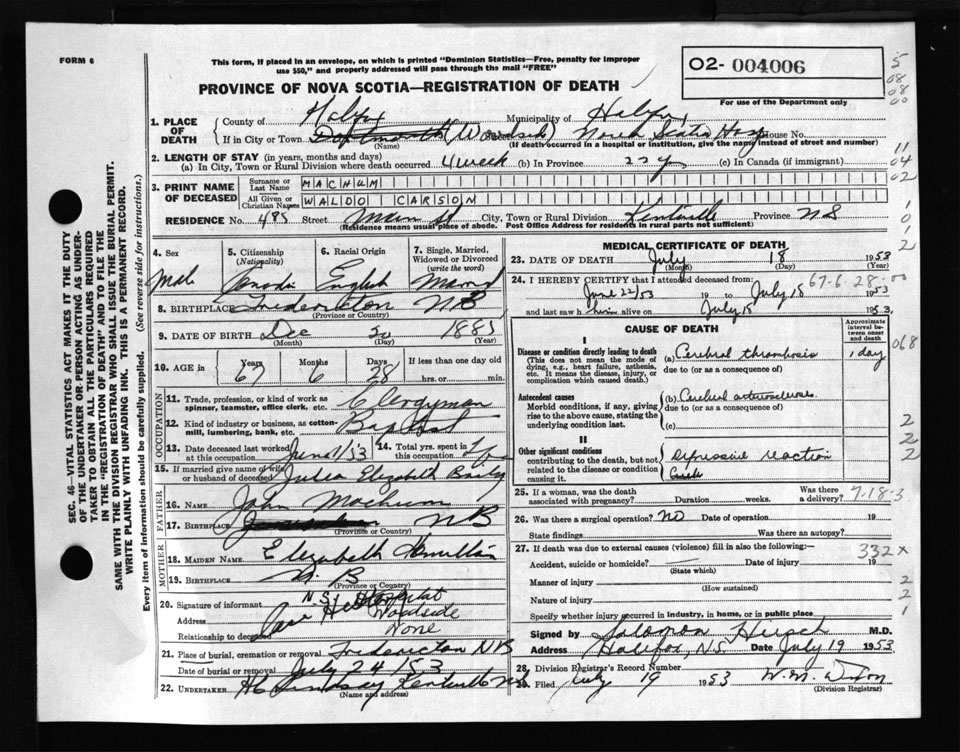 FORM 6
This form, if placed in an envelope, on which is printed "Dominion Statistics—Free, penalty for improper
use $50," and properly addressed will pass through the mail "FREE"
O2- 004006
PROVINCE OF NOVA SCOTIA—REGISTRATION OF DEATH
For use of the Department only
1. PLACE OF DEATH
County of Halifax Municipality of Halifax
If in City or Town Dartmouth (Woodside) House No.
(Name) (If death occurred in a hospital or institution, give the name instead of street and number)
2. LENGTH OF STAY (in years, months and days)
(a) In City, Town or Rural Division where death occurred 4 week (b) In Province 22 y (c) In Canada (if immigrant)
3. PRINT NAME OF DECEASED
Surname or Last Name MACHUM
All Given or Christian Names WALDO CARSON
RESIDENCE No. 485 Street Main St City, Town or Rural Division Kentville Province NS
(Residence means usual place of abode. Post Office Address for residents in rural parts not sufficient)
4. Sex Male
5. Citizenship (Nationality)
6. Racial Origin English
7. Single, Married, Widowed or Divorced (write the word)
8. BIRTHPLACE Fredericton NB
(Province or Country)
9. DATE OF BIRTH Dec 20 1885
(Month) (Day) (Year)
10. AGE in Years 67 Months 6 Days 28 If less than one day old
hrs. or min.
11. Trade, profession, or kind of work as spinner, teamster, office clerk, etc. Clergyman
12. Kind of industry or business, as cotton-mill, lumbering, bank, etc. Baptist
13. Date deceased last worked at this occupation
14. Total yrs. spent in this occupation
OCCUPATION
15. If married give name of wife or husband of deceased Julia Elizabeth Baily
FATHER
16. NAME John Machum
17. BIRTHPLACE NB
(Province or Country)
MOTHER
18. MAIDEN NAME Elizabeth
19. BIRTHPLACE N. B
(Province or Country)
20. Signature of informant N.S. Hospital
Address Woodside
Relationship to deceased None
21. Place of burial, cremation or removal Fredericton NB
Date of burial or removal July 24 153
22. UNDERTAKER Lindsay Kentville NS
(Name and address)
MEDICAL CERTIFICATE OF DEATH
23. DATE OF DEATH July 18 1953
(Month) (Day) (Year)
24. I HEREBY CERTIFY that I attended deceased from:
June 22/53 19 to July 18 1953
and last saw him alive on July 18 1953.
CAUSE OF DEATH
Approximate interval between onset and death
I
Disease or condition directly leading to death
(This does not mean the mode of dying, e.g., heart failure, asthenia, etc. It means the disease, injury, or complication which caused death.)
(a) Cerebral thrombosis 1 day
due to (or as a consequence of)
Antecedent causes
Morbid conditions, if any, giving rise to the above cause, stating the underlying condition last.
(b) Cerebral arteriosclerosis
due to (or as a consequence of)
(c)
II
Other significant conditions
contributing to the death, but not related to the disease or condition causing it.
Depressive reaction
25. If a woman, was the death associated with pregnancy? Duration weeks. Was there a delivery?
26. Was there a surgical operation? NO Date of operation 19
State findings Was there an autopsy?
27. If death was due to external causes (violence) fill in also the following:—
Accident, suicide or homicide? Date of injury 19
(State which)
Manner of injury
(How sustained)
Nature of injury
Specify whether injury occurred in industry, in home, or in public place
Signed by Solomon Hirsch M.D.
Address Halifax, N.S. Date July 19 1953
28. Division Registrar's Record Number
29. Filed July 19 1953 W. M. Dixon
(Division Registrar)
332x
SEC. 46—VITAL STATISTICS ACT MAKES IT THE DUTY
OF THE UNDERTAKER OR PERSON ACTING AS UNDER-
TAKER TO OBTAIN ALL THE PARTICULARS REQUIRED
IN THE "REGISTRATION OF DEATH" AND TO FILE THE
SAME WITH THE DIVISION REGISTRAR WHO SHALL ISSUE THE BURIAL PERMIT.
WRITE PLAINLY WITH UNFADING INK. THIS IS A PERMANENT RECORD.
Every item of information should be carefully supplied. (See reverse side for instructions.)